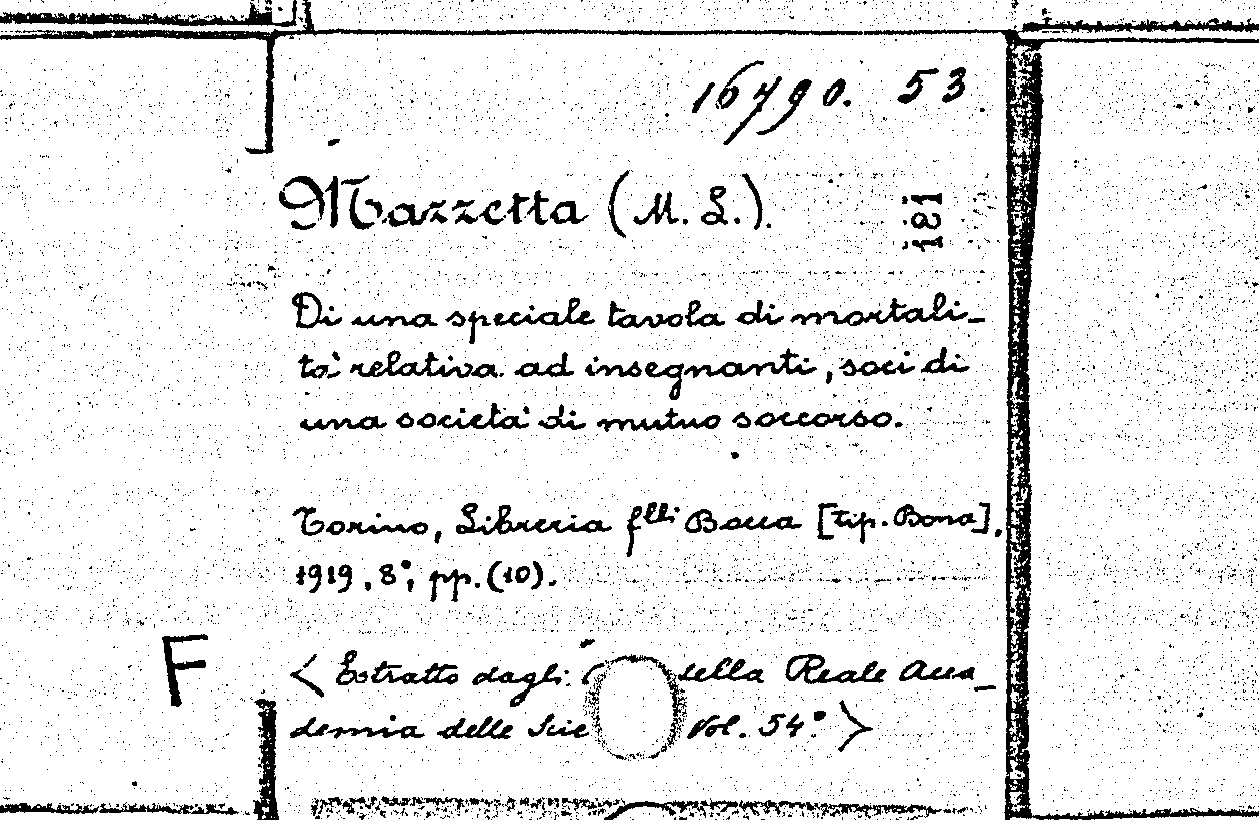 16790. 53
Mazzetta (M. L.).
181
Di una speciale tavola di mortali-
tà relativa ad insegnanti, soci di
una società di mutuo soccorso.
Torino, Libreria f.lli Bocca [tip. Bona],
1919, 8°, pp. (10).
F
< Estratto dagli della Reale Acca_
demia delle Vol. 54° >